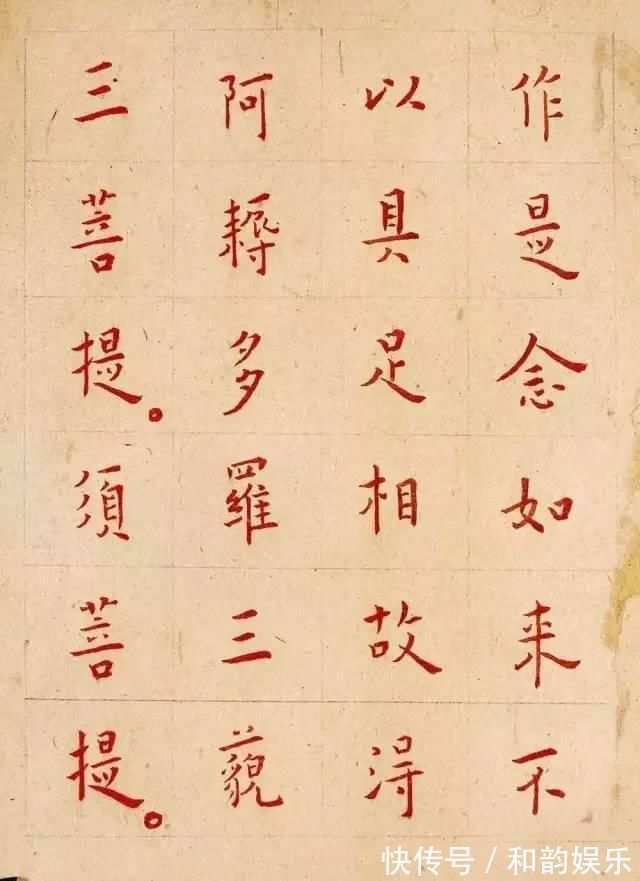 作是念如来不
以具足相故得
阿耨多羅三藐
三菩提。須菩
提。
快传号／和韵娱乐